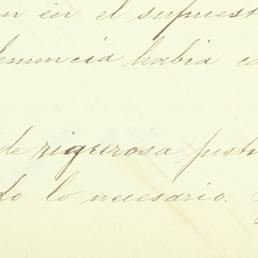 en el supuest
enuncia habia c
de rigurosa justi
do lo necesario.